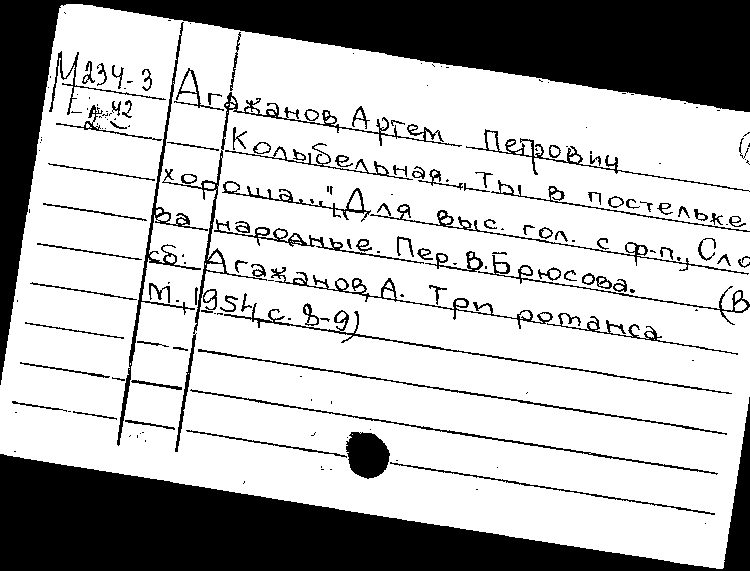 М234-3
42
2
Агажанов, Артем Петрович
Колыбельная. "Ты в постельке
хороша..." Для выс. гол. с ф-п., Сло
ва народные. Пер. В. Брюсова. (В
сб: Агажанов, А. Три романса
М., 1954, с. 8-9)